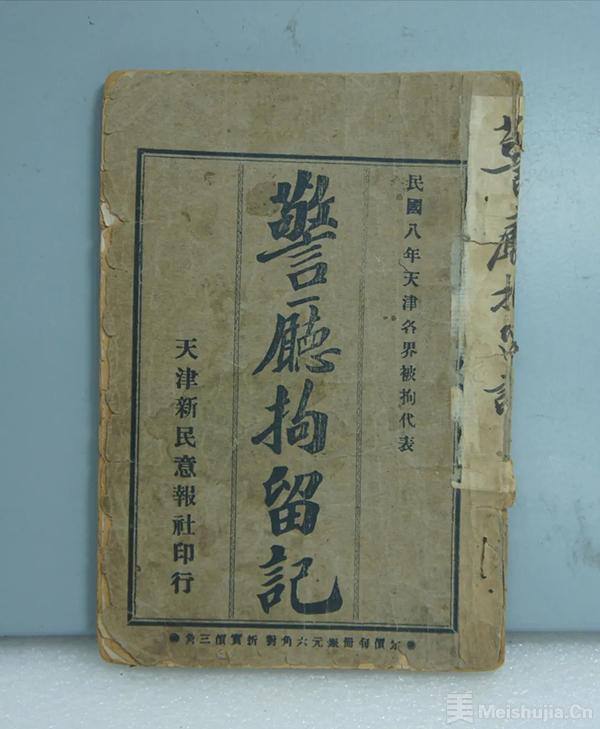 民國八年天津各界被拘代表
警廳拘留記
天津新民意報社印行
價每冊銀元六角對折實價三角
警廳拘留記
美 Meishujia.Cn